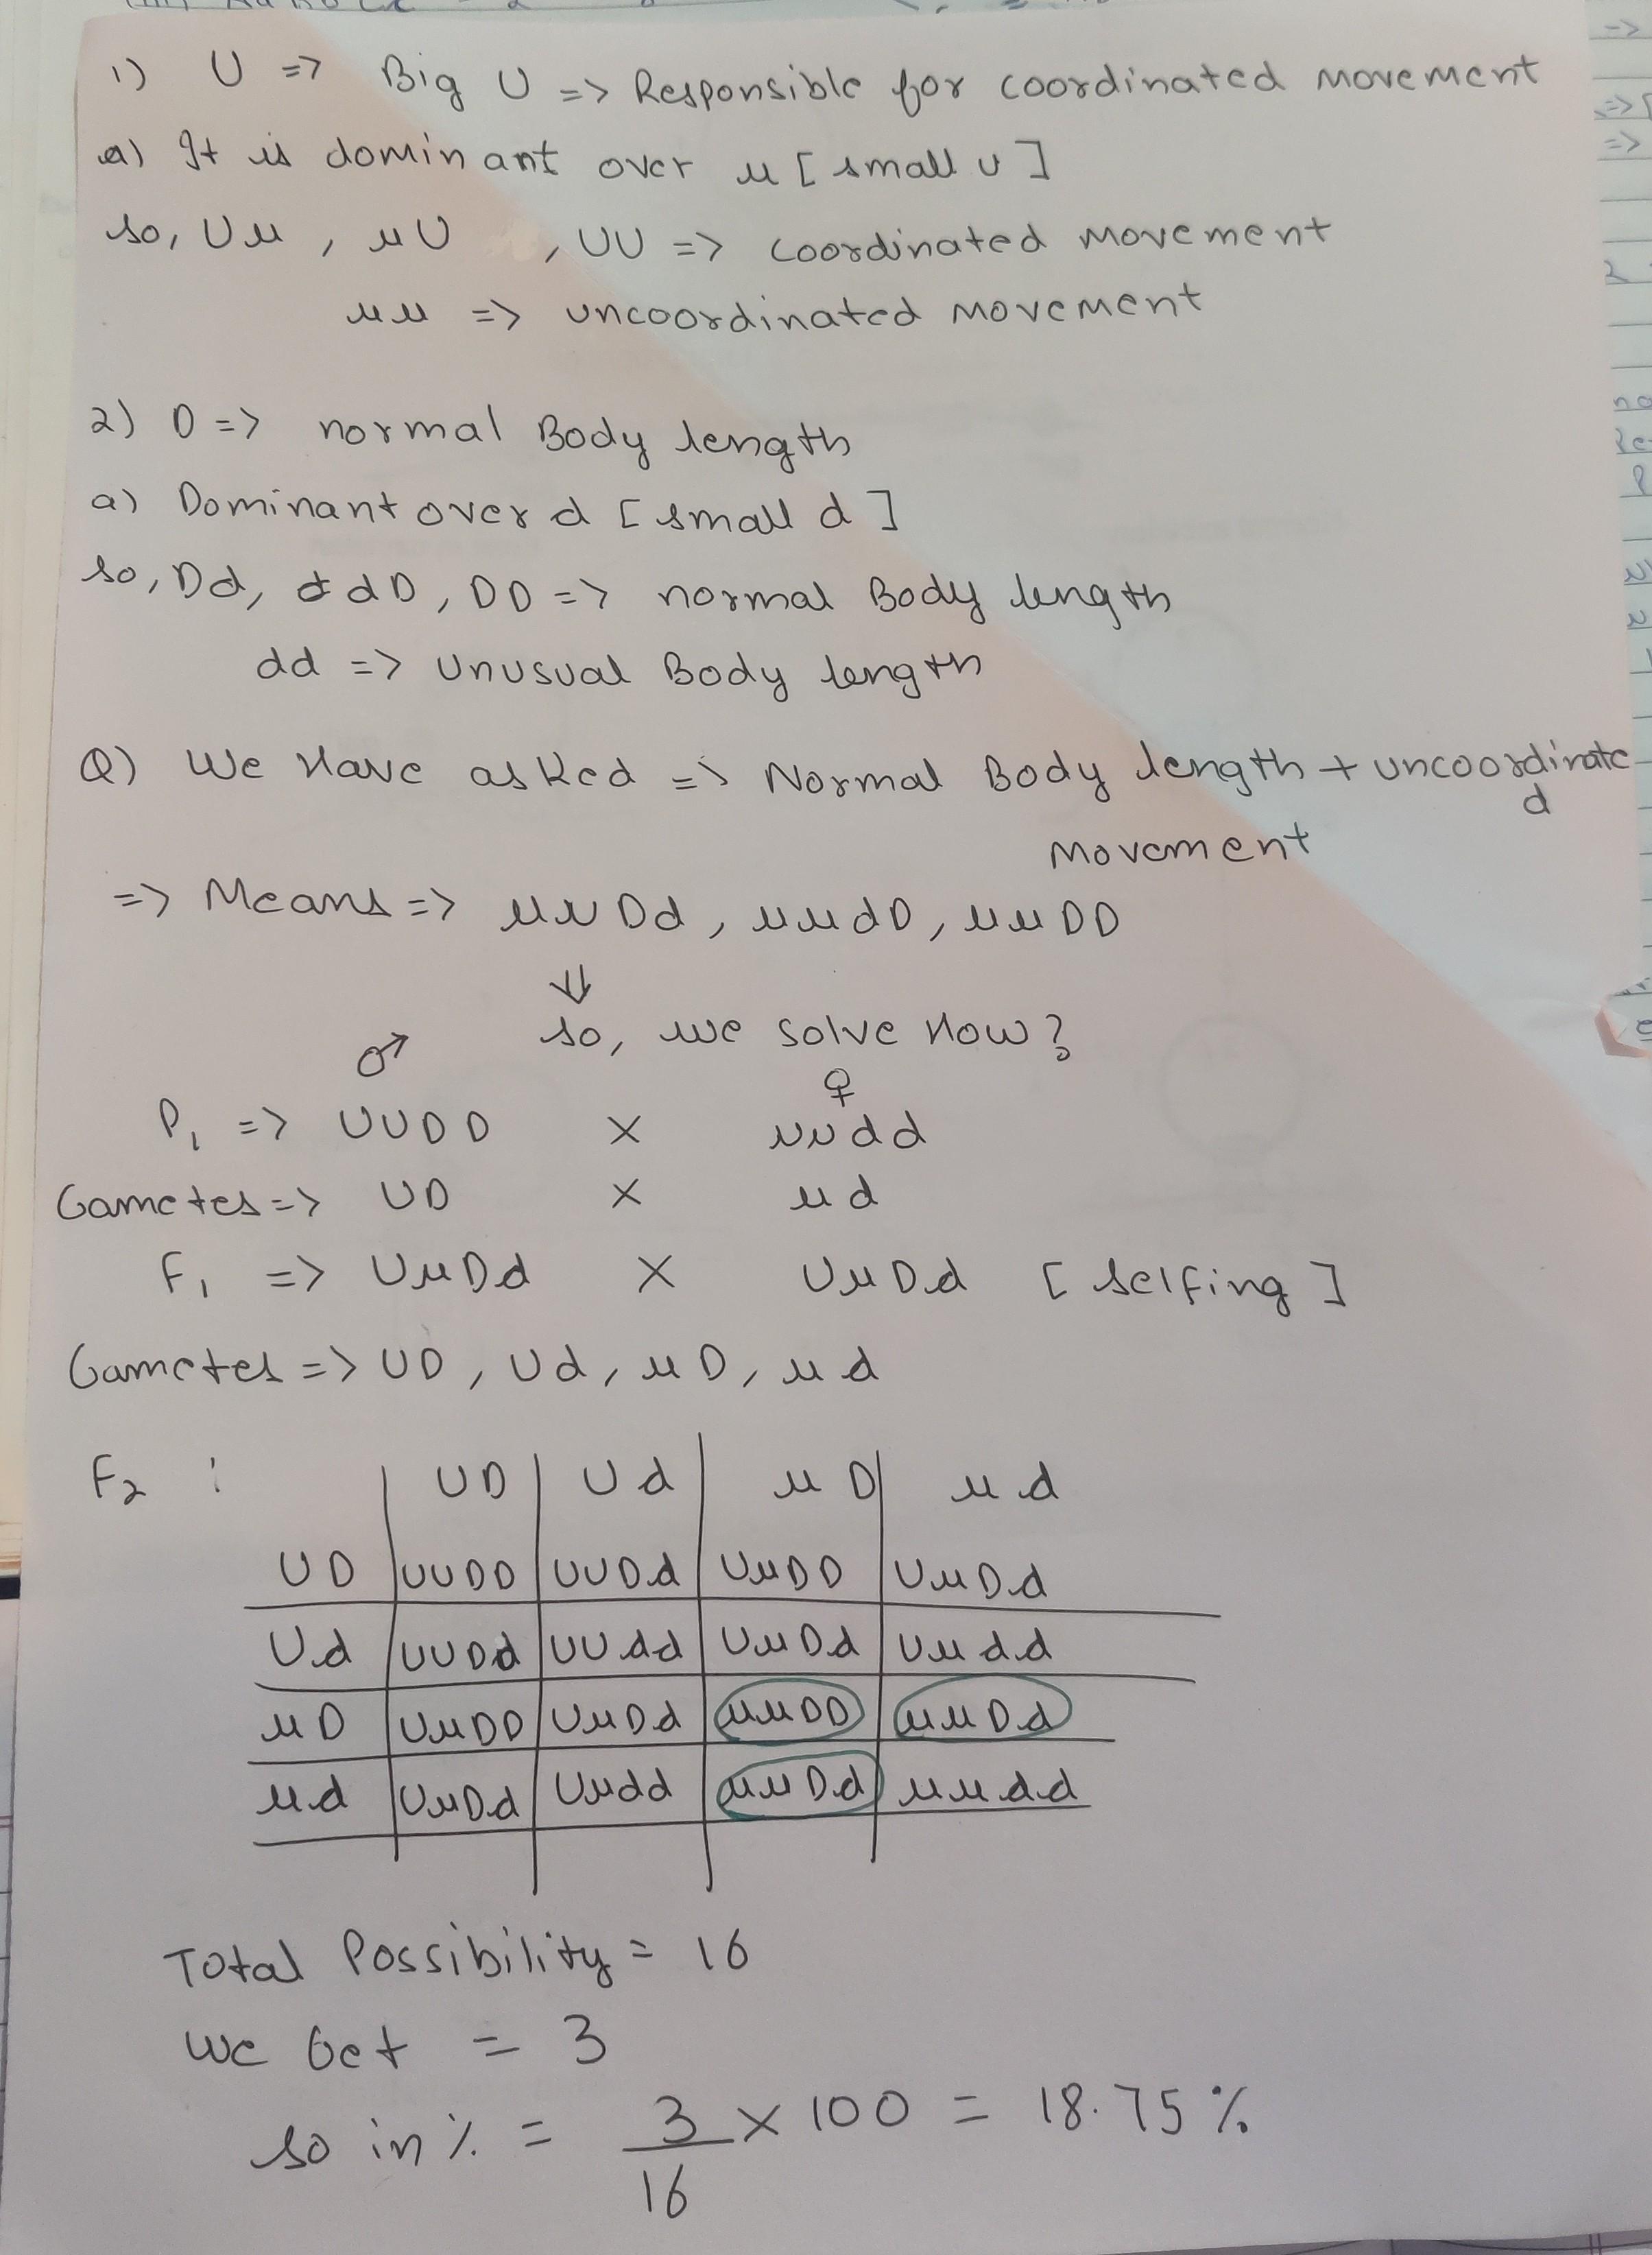 1) U => Big U => Responsible for coordinated movement
a) It is dominant over u [small u]
so, Uu, uU , UU => coordinated movement
uu => uncoordinated movement
2) D => normal Body length
a) Dominant over d [small d]
so, Dd, dD, DD => normal Body length
dd => unusual Body length
Q) We Have asked => Normal Body length + uncoordinated
Movement
=> Means => uuDd, uudD, uuDD
⇓
so, we solve How?
♂ ♀
P1 => UUDD × uudd
Gametes => UD × ud
F1 => UuDd × UuDd [selfing]
Gametes => UD, Ud, uD, ud
F2 : UD Ud uD ud
UD UUDD UUDd UuDD UuDd
Ud UUDd UUdd UuDd Uudd
uD UuDD UuDd uuDD uuDd
ud UuDd Uudd uuDd uudd
Total Possibility = 16
We Get = 3
so in % = 3/16 × 100 = 18.75 %